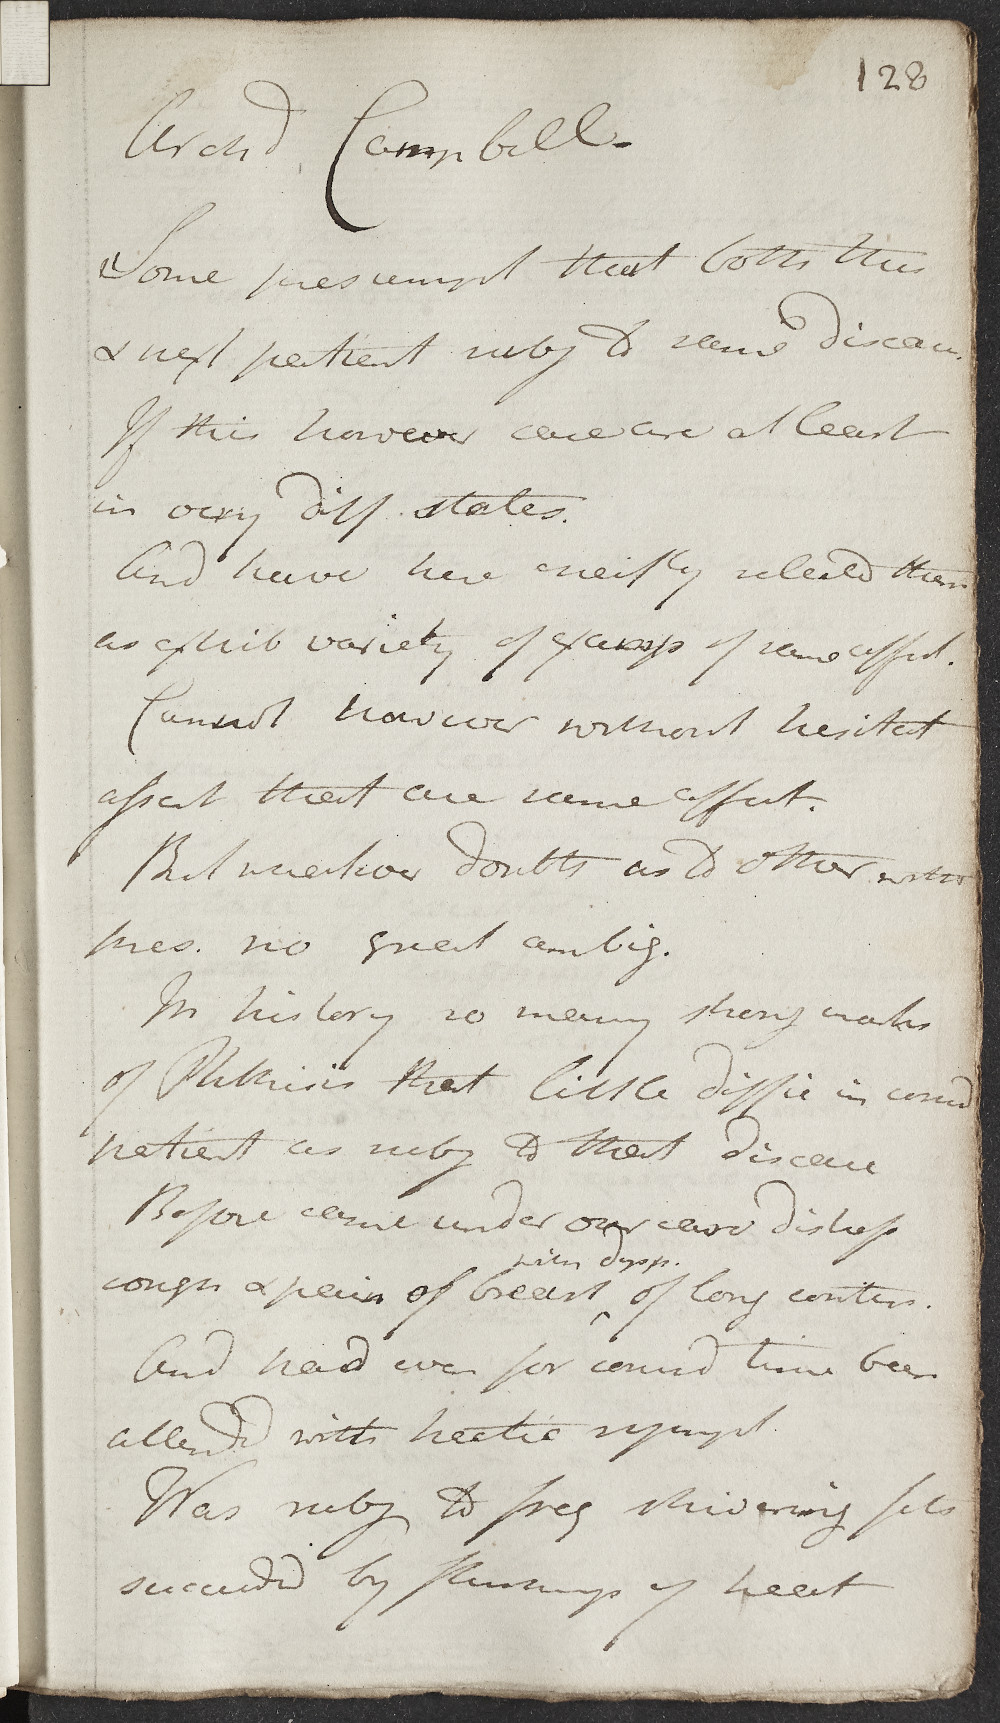 128
Archd Campbell.
Some presumpt that both this
& next patient subj to same disease.
If this however case are at least
in very diff. states.
And have here chiefly selected them
as exhib variety of examp of same affect.
Cannot however without hesitat
assert that are same affect.
But whatever doubts as to other with
pres. no great ambig.
In history so many strong marks
of Phthisis that little diffic in consid
patient as subj to that disease
Before came under our care distress
with dysp.
cough & pain of breast ^ of long contin.
And had even for consid time been
attend'd with hectic sympt.
Was subj to freq shivering fits
succeed'd by flushings of heat